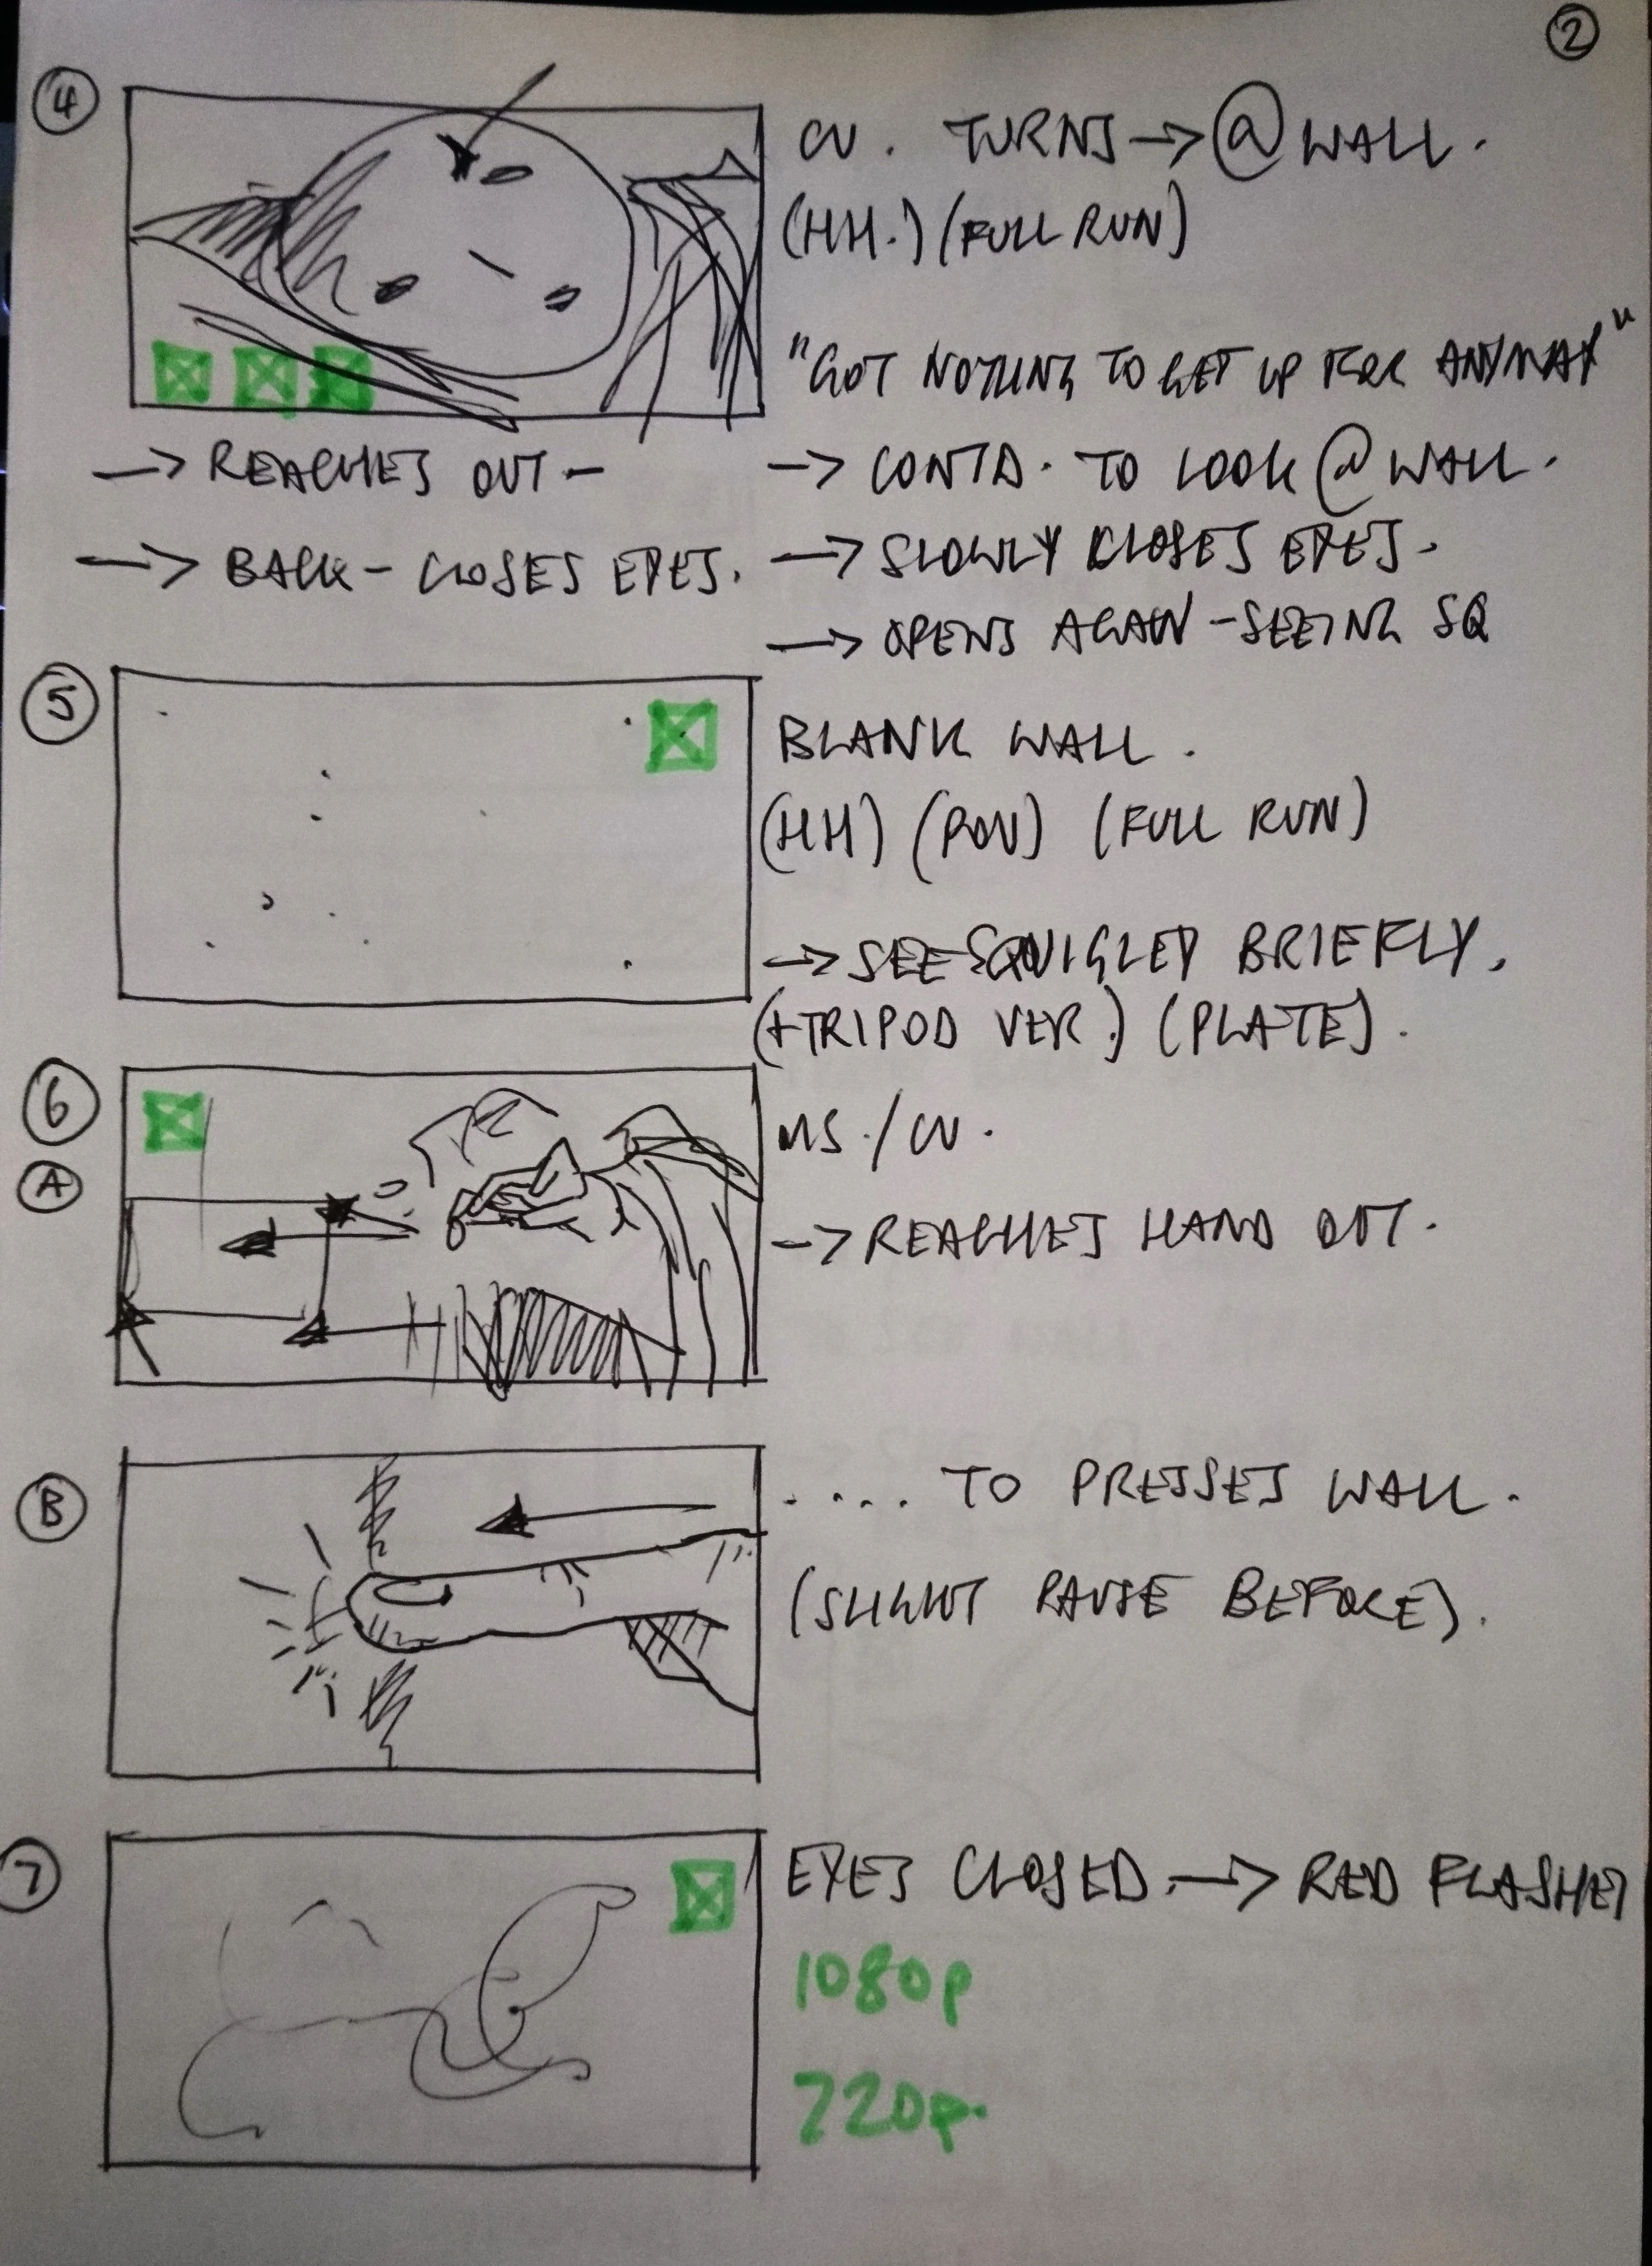 2
4
CU. TURNS → @ WALL.
(HH.) (FULL RUN)
"GOT NOTHING TO GET UP FOR ANYWAY"
→ REACHES OUT -
→ CONTD. TO LOOK @ WALL.
→ BACK - CLOSES EYES.
→ SLOWLY CLOSES EYES.
→ OPENS AGAIN - SEEING SQ
5
BLANK WALL.
(HH) (POV) (FULL RUN)
→ SEE SQUIGLEY BRIEFLY.
(+TRIPOD VER.) (PLATE).
6
A
MS./CU.
→ REACHES HAND OUT.
B
.... TO PRESSES WALL.
(SLIGHT PAUSE BEFORE).
7
EYES CLOSED. → RED FLASHES
1080p
720p.